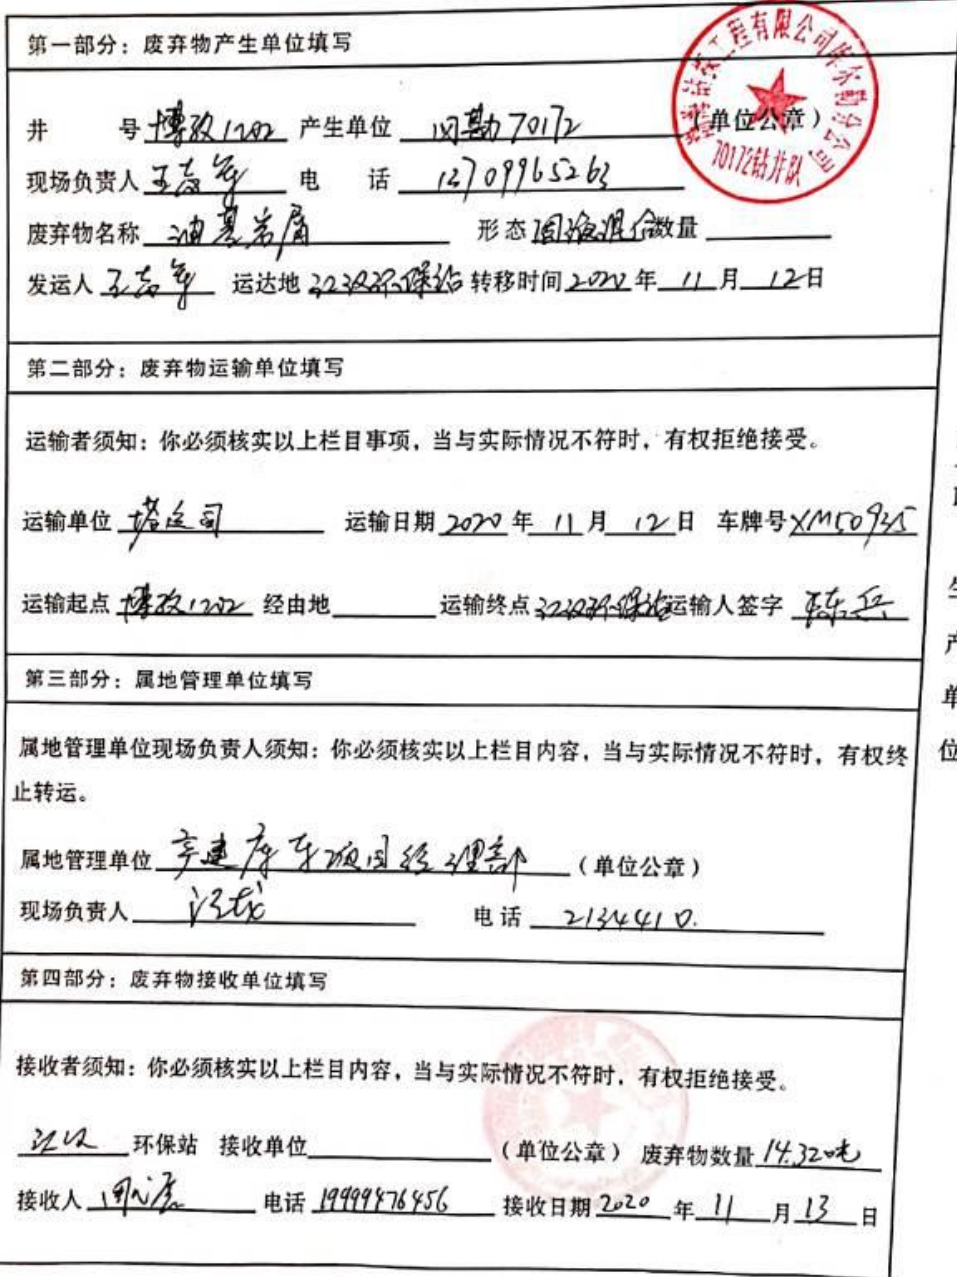 第一部分：废弃物产生单位填写
工程有限公司库尔勒分公司
70172钻井队
井 号 博孜1202 产生单位 川勘70172 （单位公章）
现场负责人 王志军 电 话 13709965263
废弃物名称 油基岩屑 形态 固液混合 数量
发运人 王志军 运达地 环保站 转移时间 2020 年 11 月 12 日
第二部分：废弃物运输单位填写
运输者须知：你必须核实以上栏目事项，当与实际情况不符时，有权拒绝接受。
运输单位 塔运司 运输日期 2020 年 11 月 12 日 车牌号
运输起点 博孜1202 经由地 运输终点 环保站 运输人签字 陈兵
第三部分：属地管理单位填写
属地管理单位现场负责人须知：你必须核实以上栏目内容，当与实际情况不符时，有权终
止转运。
属地管理单位 库车项目经理部 （单位公章）
现场负责人 电话 2134410.
第四部分：废弃物接收单位填写
接收者须知：你必须核实以上栏目内容，当与实际情况不符时，有权拒绝接受。
环保站 接收单位 （单位公章） 废弃物数量 14.32吨
接收人 电话 19999476456 接收日期 2020 年 11 月 13 日
产
单
位